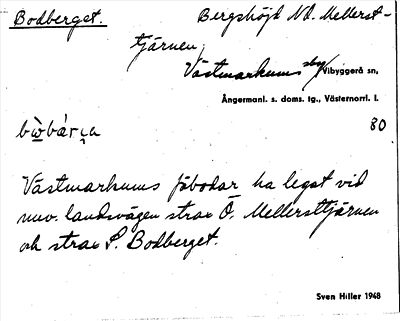 Bodberget. Bergshöjd NO. Mellerst-
tjärnen,
Västmarkums by Vibyggerå sn,
Ångermanl. s. doms. tg., Västernorrl. l.
80
Västmarkums fäbodar ha legat vid
nuv. landsvägen strax Ö. Mellersttjärnen
och strax S. Bodberget.
Sven Hiller 1948